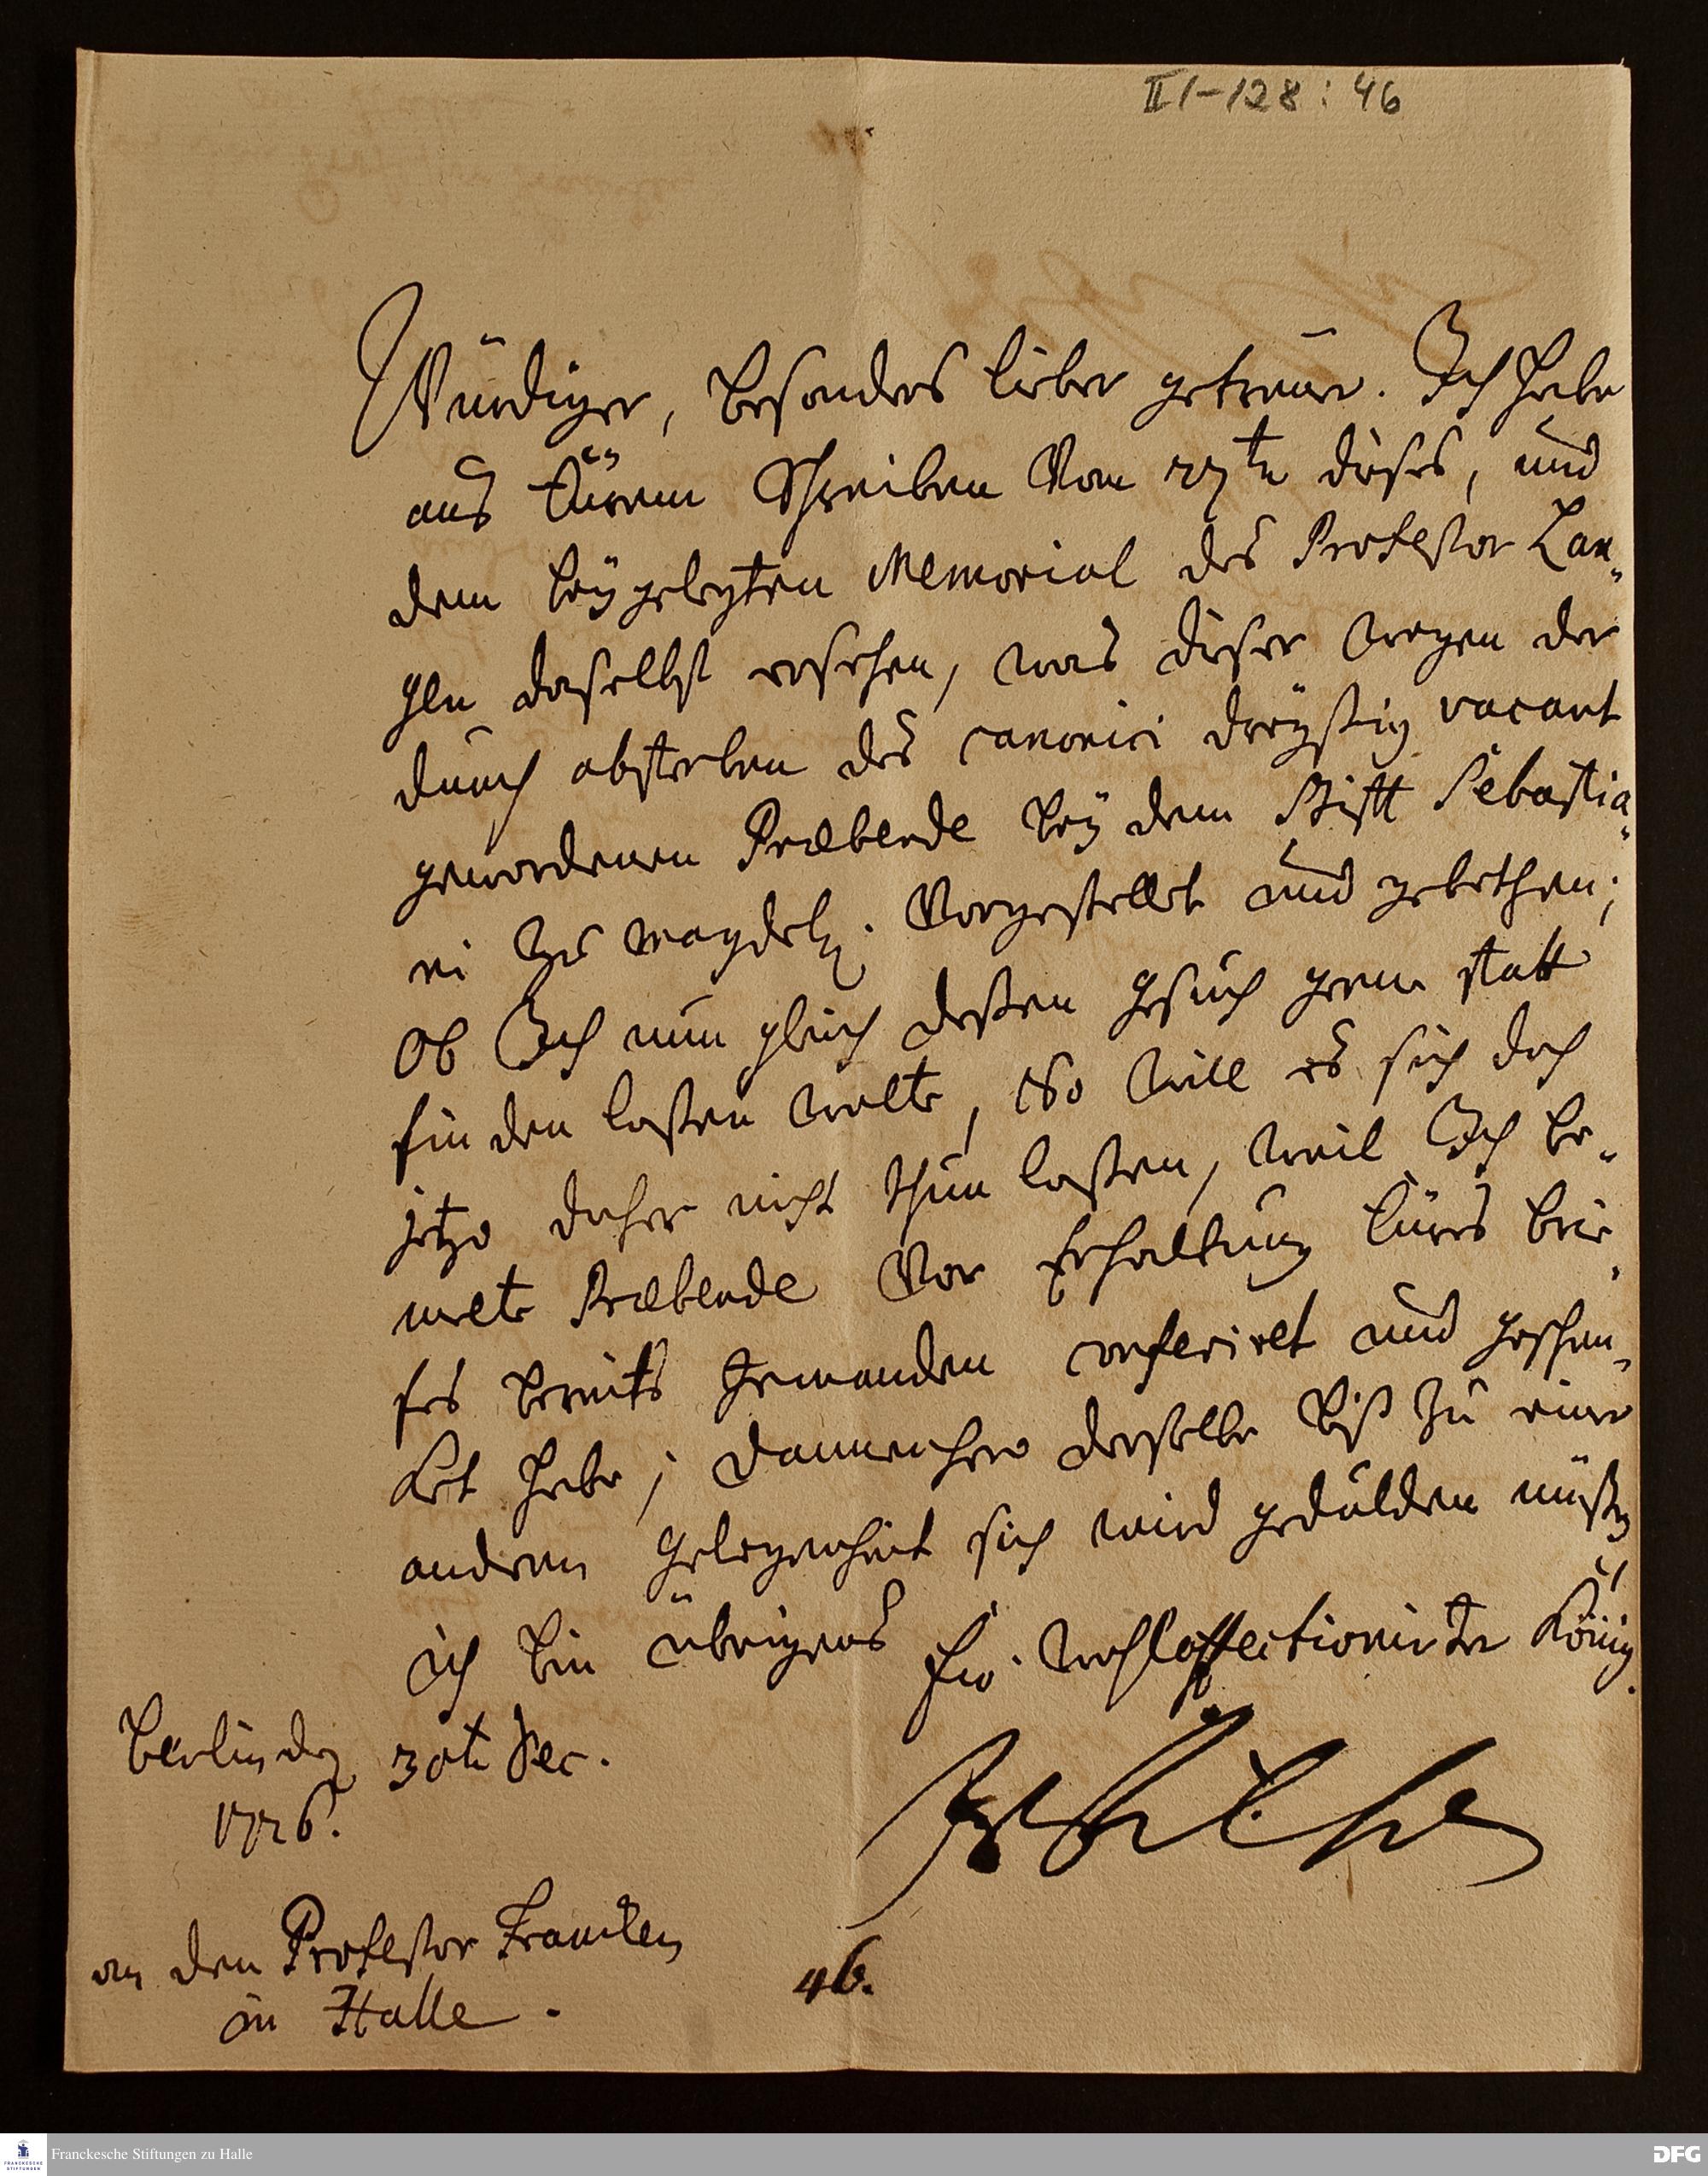 II 1-128 : 46
Würdiger, besonders lieber getreuer. Ich habe
aus Eürem Schreiben vom 27te dieses, und
dem beÿgelegten Memorial des Professor Lan-
gen daselbst ersehen, was dieser wegen der
durch absterben des canonici Dreÿßig vacant
gewordenen Præbende beÿ dem Stifft Sebastia-
ni zu Magdeb. vorgestellet und gebethen;
Ob Ich nun gleich deßen gesuch gern statt
finden laßen wolte, So will es sich doch
jetzo daher nicht thun laßen, weil Ich be-
melte Præbende vor Erhaltung Eures brie-
fes bereits jemanden conferiret und geschen-
ket habe; dannenhero derselbe biß zu einer
anderen gelegenheit sich wird gedulden müßen
ich bin übrigens Eür wohlaffectionirter König.
Berlin den 30te Dec.
1726.
FrWilhelm
an den Professor Francken
in Halle.
46.
Franckesche Stiftungen zu Halle
FRANCKESCHE
STIFTUNGEN
DFG